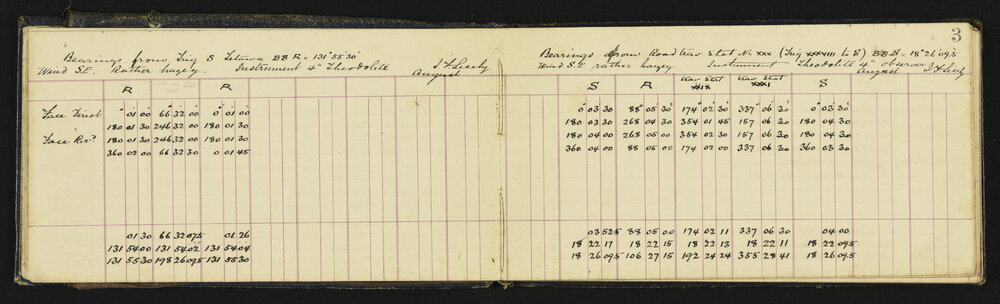 3
Bearings from Trig S Setawa BB R = 131° 55' 30"
Wind S.E. Rather hazy. Instrument 4" Theodolite
August
R R
Face Direct 0 01 00 66 32 00 0 01 00
180 01 30 246 32 00 180 01 30
Face Rev? 180 01 30 246 32 00 180 01 30
360 02 00 66 32 30 0 01 45
01 30 66 32 07.5 01 26
131 54 00 131 54 02 131 54 04
131 55 30 198 26 09.5 131 55 30
Bearings from Road trav Stat No XXX (Trig XXXVIII to S) BB S = 18° 26' 09.5
Wind S.E. rather hazy Instrument Theodolite 4" observer
August
S R trav Stat XXIX trav Stat XXXI S
0 03 30 88 05 30 174 02 30 337 06 30 0 03 30
180 03 30 268 04 30 354 01 45 157 06 30 180 04 30
180 04 00 268 05 00 354 02 30 157 06 30 180 04 30
360 04 00 88 05 00 174 02 00 337 06 30 360 03 30
03 52.5 88 05 00 174 02 11 337 06 30 04 00
18 22 17 18 22 15 18 22 13 18 22 11 18 22 09.5
18 26 09.5 106 27 15 192 24 24 355 28 41 18 26 09.5